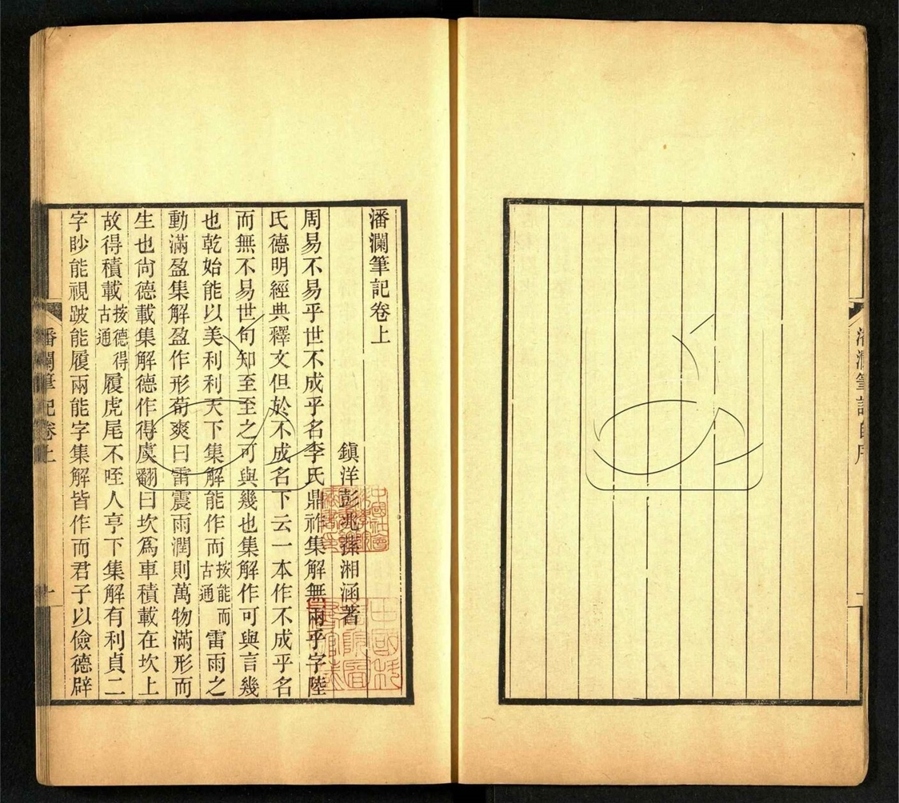 潘瀾筆記卷上
鎮洋彭兆蓀湘涵著
周易不易乎世不成乎名李氏鼎祚集解無兩乎字陸
氏德明經典釋文但於不成名下云一本作不成乎名
而無不易世句知至至之可與幾也集解作可與言幾
也乾始能以美利利天下集解能作而按能而古通雷雨之
動滿盈集解盈作形荀爽曰雷震雨潤則萬物滿形而
生也尙德載集解德作得虞翻曰坎爲車積載在坎上
故得積載按德得古通履虎尾不咥人亨下集解有利貞二
字眇能視跛能履兩能字集解皆作而君子以儉德辟
潘瀾筆記卷上
一